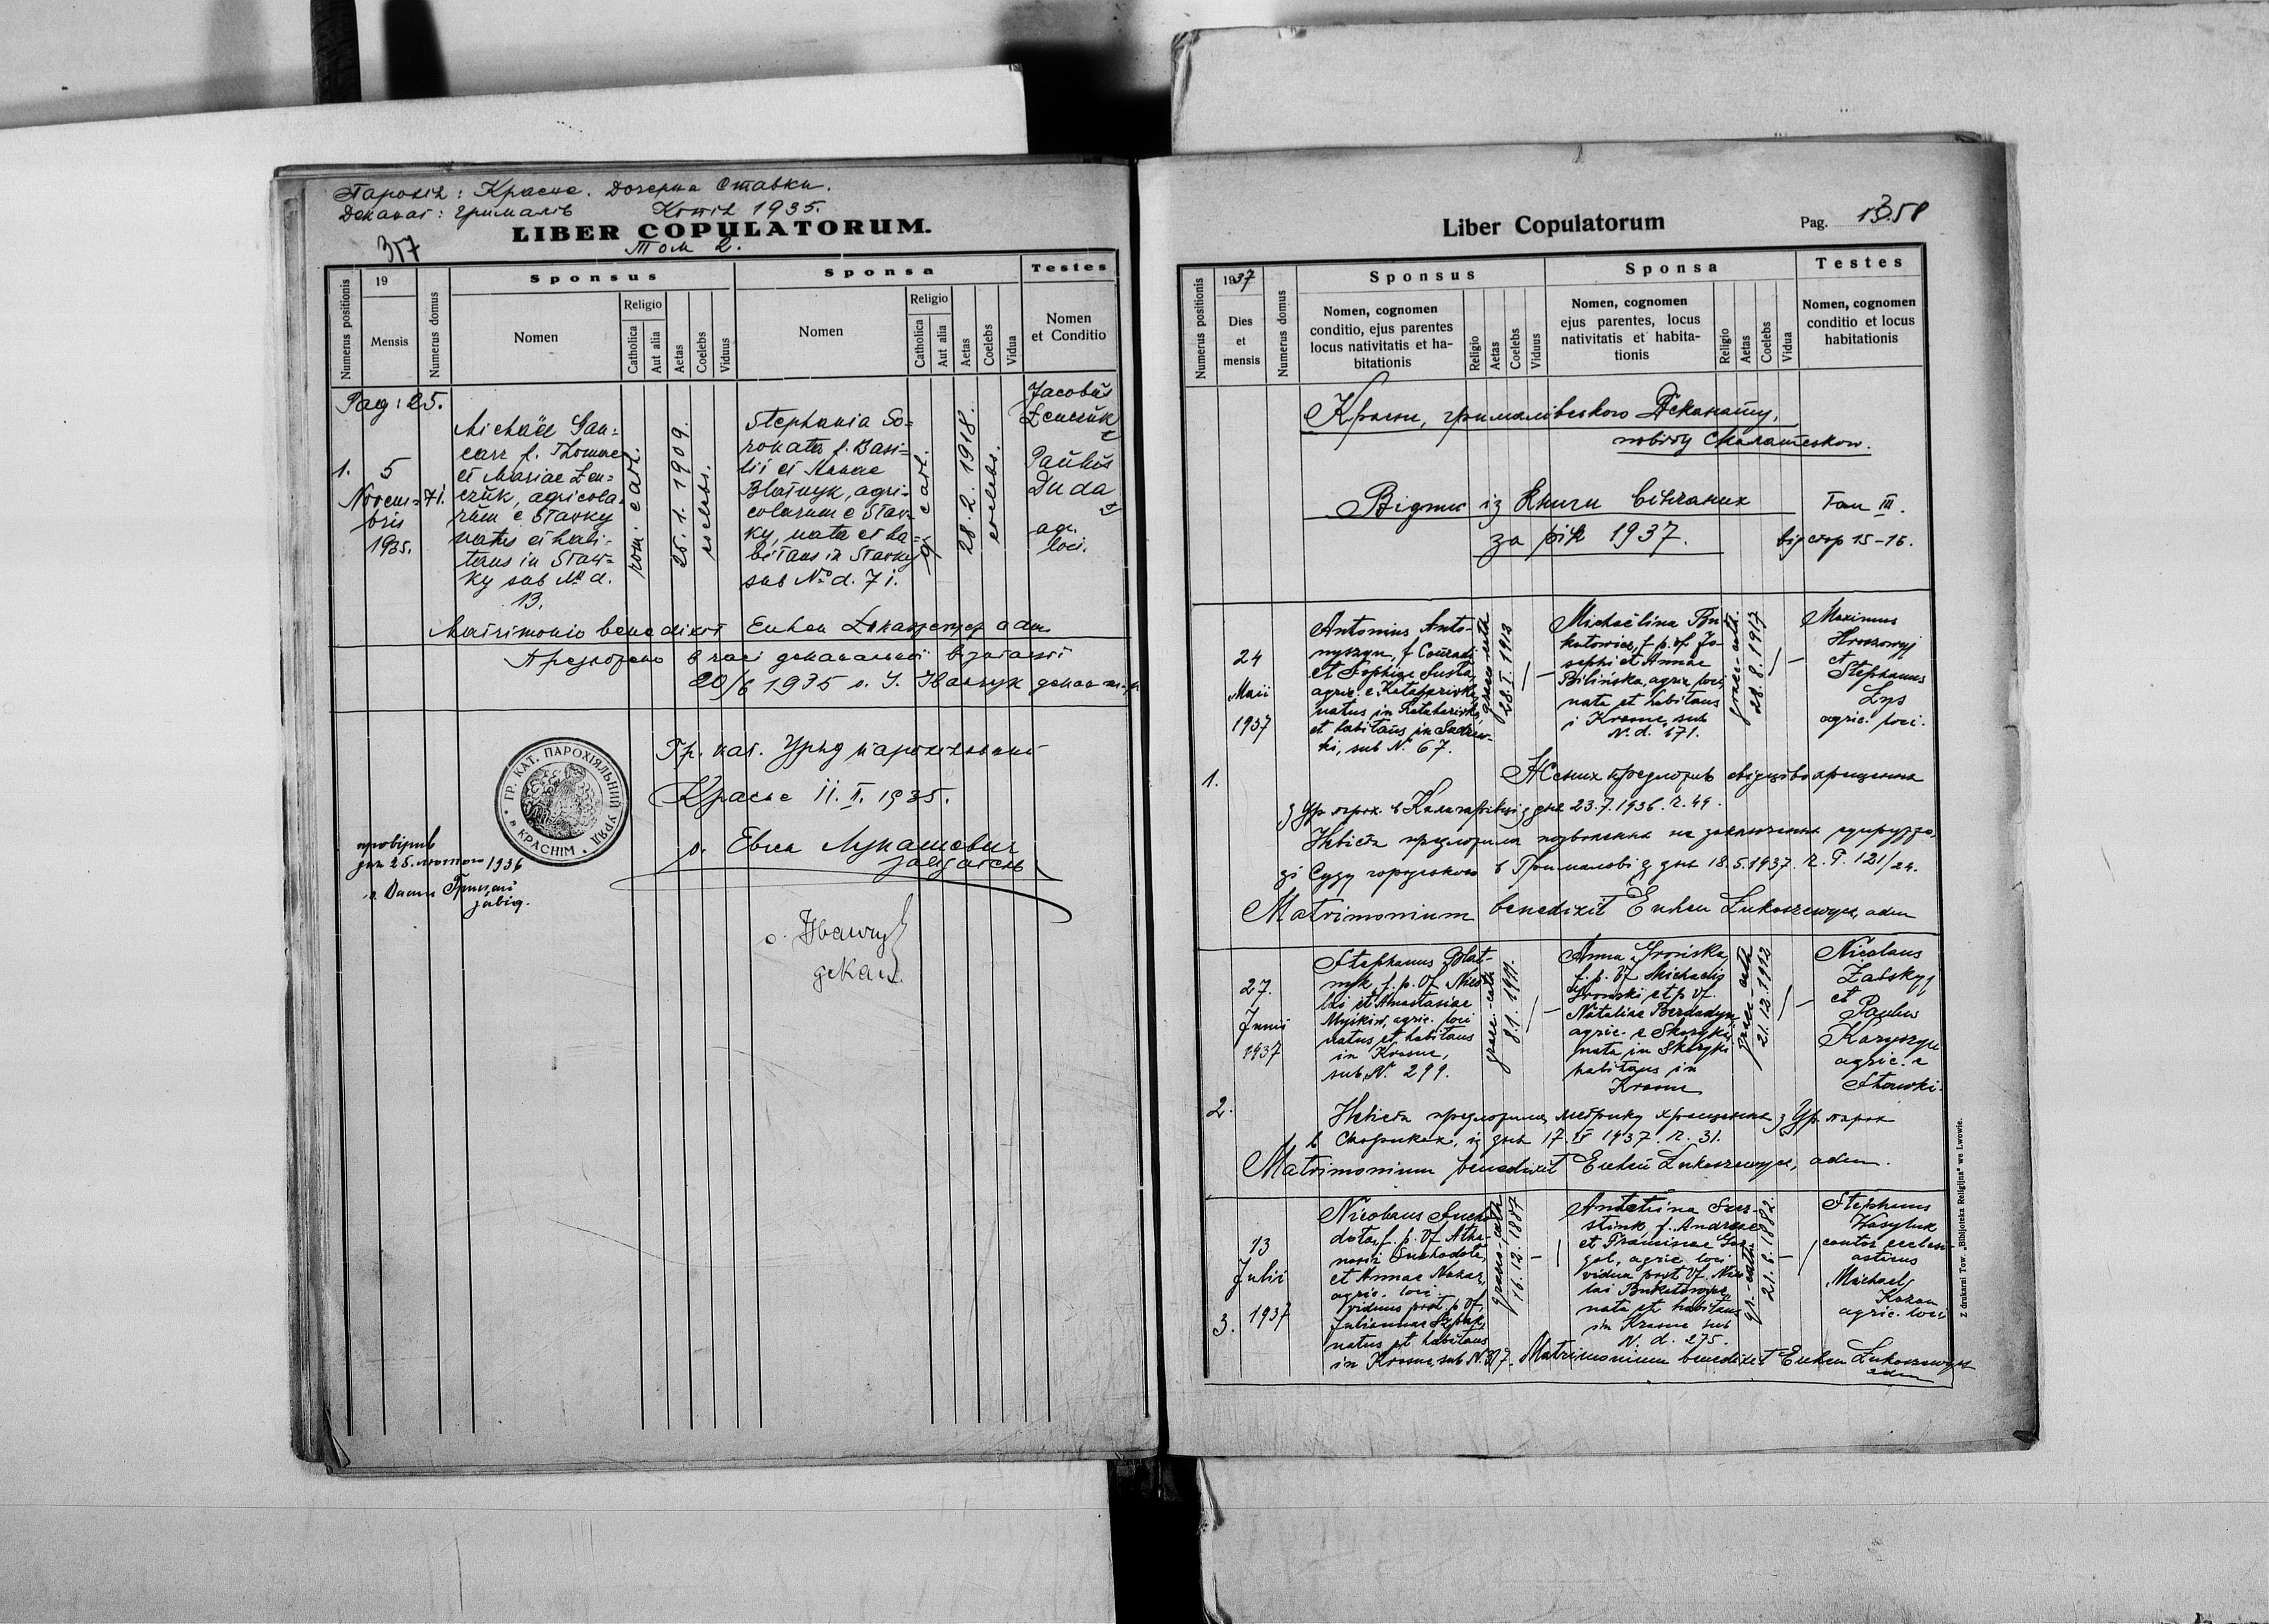 Парохія: Красне. Дочерна Ставки.
Деканат: Грималів Копія 1935.
LIBER COPULATORUM.
357 Том 2.
Numerus positionis
19
Mensis
Numerus domus
Sponsus
Nomen
Religio
Catholica
Aut alia
Aetas
Coelebs
Viduus
Sponsa
Nomen
Religio
Catholica
Aut alia
Aetas
Coelebs
Vidua
Testes
Nomen
et Conditio
Pag: 25.
1.
5
Novem=
bris
1935.
71.
Michaël Gan=
carz f. Thomae
et Mariae Zen=
czuk, agricola=
rum e Stavky
natus et habi=
tans in Stav=
ky sub No d.
13.
rom. cath.
25. 1. 1909.
coelebs.
Stephania So=
ronata f. Basi=
lii et Annae
Blatnyk, agri=
colarum e Stav=
ky, nata et ha=
bitans in Stavky
sub No d. 71.
gr. cath.
28. 2. 1918.
coelebs.
Jacobus
Zenczuk
et
Paulus
Duda
agr.
loci.
Matrimonio benedixit Euhen Lukaszewycz adm
Предложено в часі деканальної візитації
20/6 1935 о. І. Іванчук декан
Гр. кат. Уряд парохіяльний
Красне 11. II. 1935.
о. Евген Лукашевич
завідатель
ГР. КАТ. ПАРОХІЯЛЬНИЙ УРЯД
в КРАСНІМ
провірив
дня 25. лютого 1936
о.
завід.
о. Іванчук
декан.
Liber Copulatorum
Pag. 358
Numerus positionis
1937
Dies
et
mensis
Numerus domus
Sponsus
Nomen, cognomen
conditio, ejus parentes
locus nativitatis et ha-
bitationis
Religio
Aetas
Coelebs
Viduus
Sponsa
Nomen, cognomen
ejus parentes, locus
nativitatis et habita-
tionis
Religio
Aetas
Coelebs
Vidua
Testes
Nomen, cognomen
conditio et locus
habitationis
Красне, грималівського Деканату,
повіту Скалатського.
Відпис із Книги вінчаних Том III.
за рік 1937. від стор 15-16.
1.
24
Maii
1937
Antonius Anto-
nyszyn, f. Conradi
et Sophiae Susta,
agric. e Kałaharivka,
natus in Kałaharivka,
et habitans in Sadzaw-
ki, sub N. 67.
graeco-cath
28. I. 1913
Michaëlina Bu-
katowicz, f. p. vf. Jo-
sephi et Annae
Bilińska, agric. loci,
nata et habitans
i Krasne, sub
N. d. 671.
graec-cath.
28. 8. 1917
Maximus
et
Stephanus
Lys
agric. loci.
Жених предложив свідоцтво хрещення
з Ур. парох. в Калагарівці з дня 23.7.1936. ч. 49.
Невіста предложила позволення на заключення супружа,
зі Суду городського в Грималові з дня 18.5.1937. ч. Р. 121/24.
Matrimonium benedixit Euhen Lukaszewycz, adm
2.
27.
Junii
1937
Stephanus Blat-
nyk, f. p. vf. Nico
lai et Anastasiae
Mysikiw, agric. loci
natus et habitans
in Krasne,
sub N. 299.
graec.-cath
8. 1. 1911.
Anna Hrońska,
f. p. vf. Michaelis
Hronski et p. vf.
Nataliae Berdadyn,
agric. e Skoryki
nata in Skoryki
habitans in
Krasne
graec-cath
21. 12. 1912
Nicolaus
Zabskyj
et
Paulus
Karyszyn
agric. e
Stawki.
Невіста предложила метрику хрещення з Ур. парох
в Скориках, із дня 17. VI 1937. ч. 31.
Matrimonium benedixit Euhen Lukaszewycz, adm.
3.
13
Julii
1937
Nicolaus Sucho
dola, f. p. vf. Atha-
nasii Suchodola,
et Annae Nakaz,
agric. loci.
viduus post p. vf.
Juliannae
natus et habitans
in Krasne, sub N. 317.
graeco-cath
16. 12. 1887
f. Andreae
et Franciscae
agric. loci
vidua post vf. Nico
lai Bukatowicz,
nata et habitans
in Krasne sub
N. d. 275.
gr.-cath.
21. 6. 1882.
Stephanus
Wasyluk
cantor ecclesi-
asticus
Michael
Kozan
agric. loci
Matrimonium benedixit Euhen Lukaszewycz
adm
Z drukarni Tow. „Bibljoteka Religijna" we Lwowie.